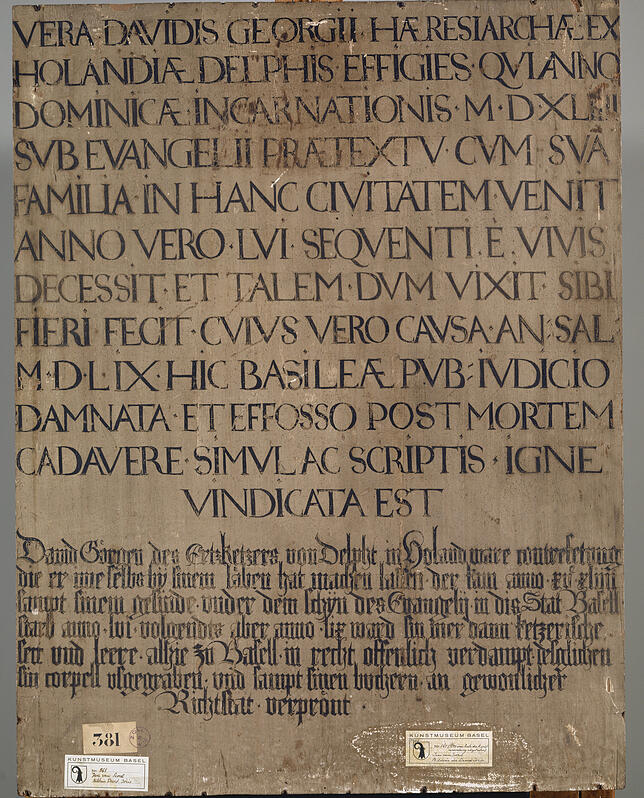 VERA DAVIDIS GEORGII HÆRESIARCHÆ EX
HOLANDIÆ DELPHIS EFFIGIES · QVI ANNO
DOMINICÆ INCARNATIONIS · M · D · XLIIII
SVB EVANGELII PRÆTEXTV · CVM SVA
FAMILIA IN HANC CIVITATEM VENIT
ANNO VERO · LVI · SEQVENTI · E VIVIS
DECESSIT · ET TALEM · DVM VIXIT · SIBI
FIERI FECIT · CVIVS VERO CAVSA · AN · SAL
M · D · LIX · HIC BASILEÆ PVB: IVDICIO
DAMNATA · ET EFFOSSO POST MORTEM
CADAVERE · SIMVL AC SCRIPTIS · IGNE
VINDICATA EST
David Görgen des Ertzketzers von Delpht in Holand ware conterfetung
die er ime selbs by sinem läben hat machen lassen der kam anno xv xliiij
sampt sinem gesinde vnder dem schyn des Euangelij in dis Stat Basell
starb anno · lvi · volgendts aber anno · lix ward sin hier dann ketzerische
sect vnd leere alhie zu Basell in recht offenlich verdampt desglichen
sin corpell vsgegraben vnd sampt sinen büchern an gewonlicher
Richtstat verprent ·
381
KUNSTMUSEUM BASEL
KUNSTMUSEUM BASEL